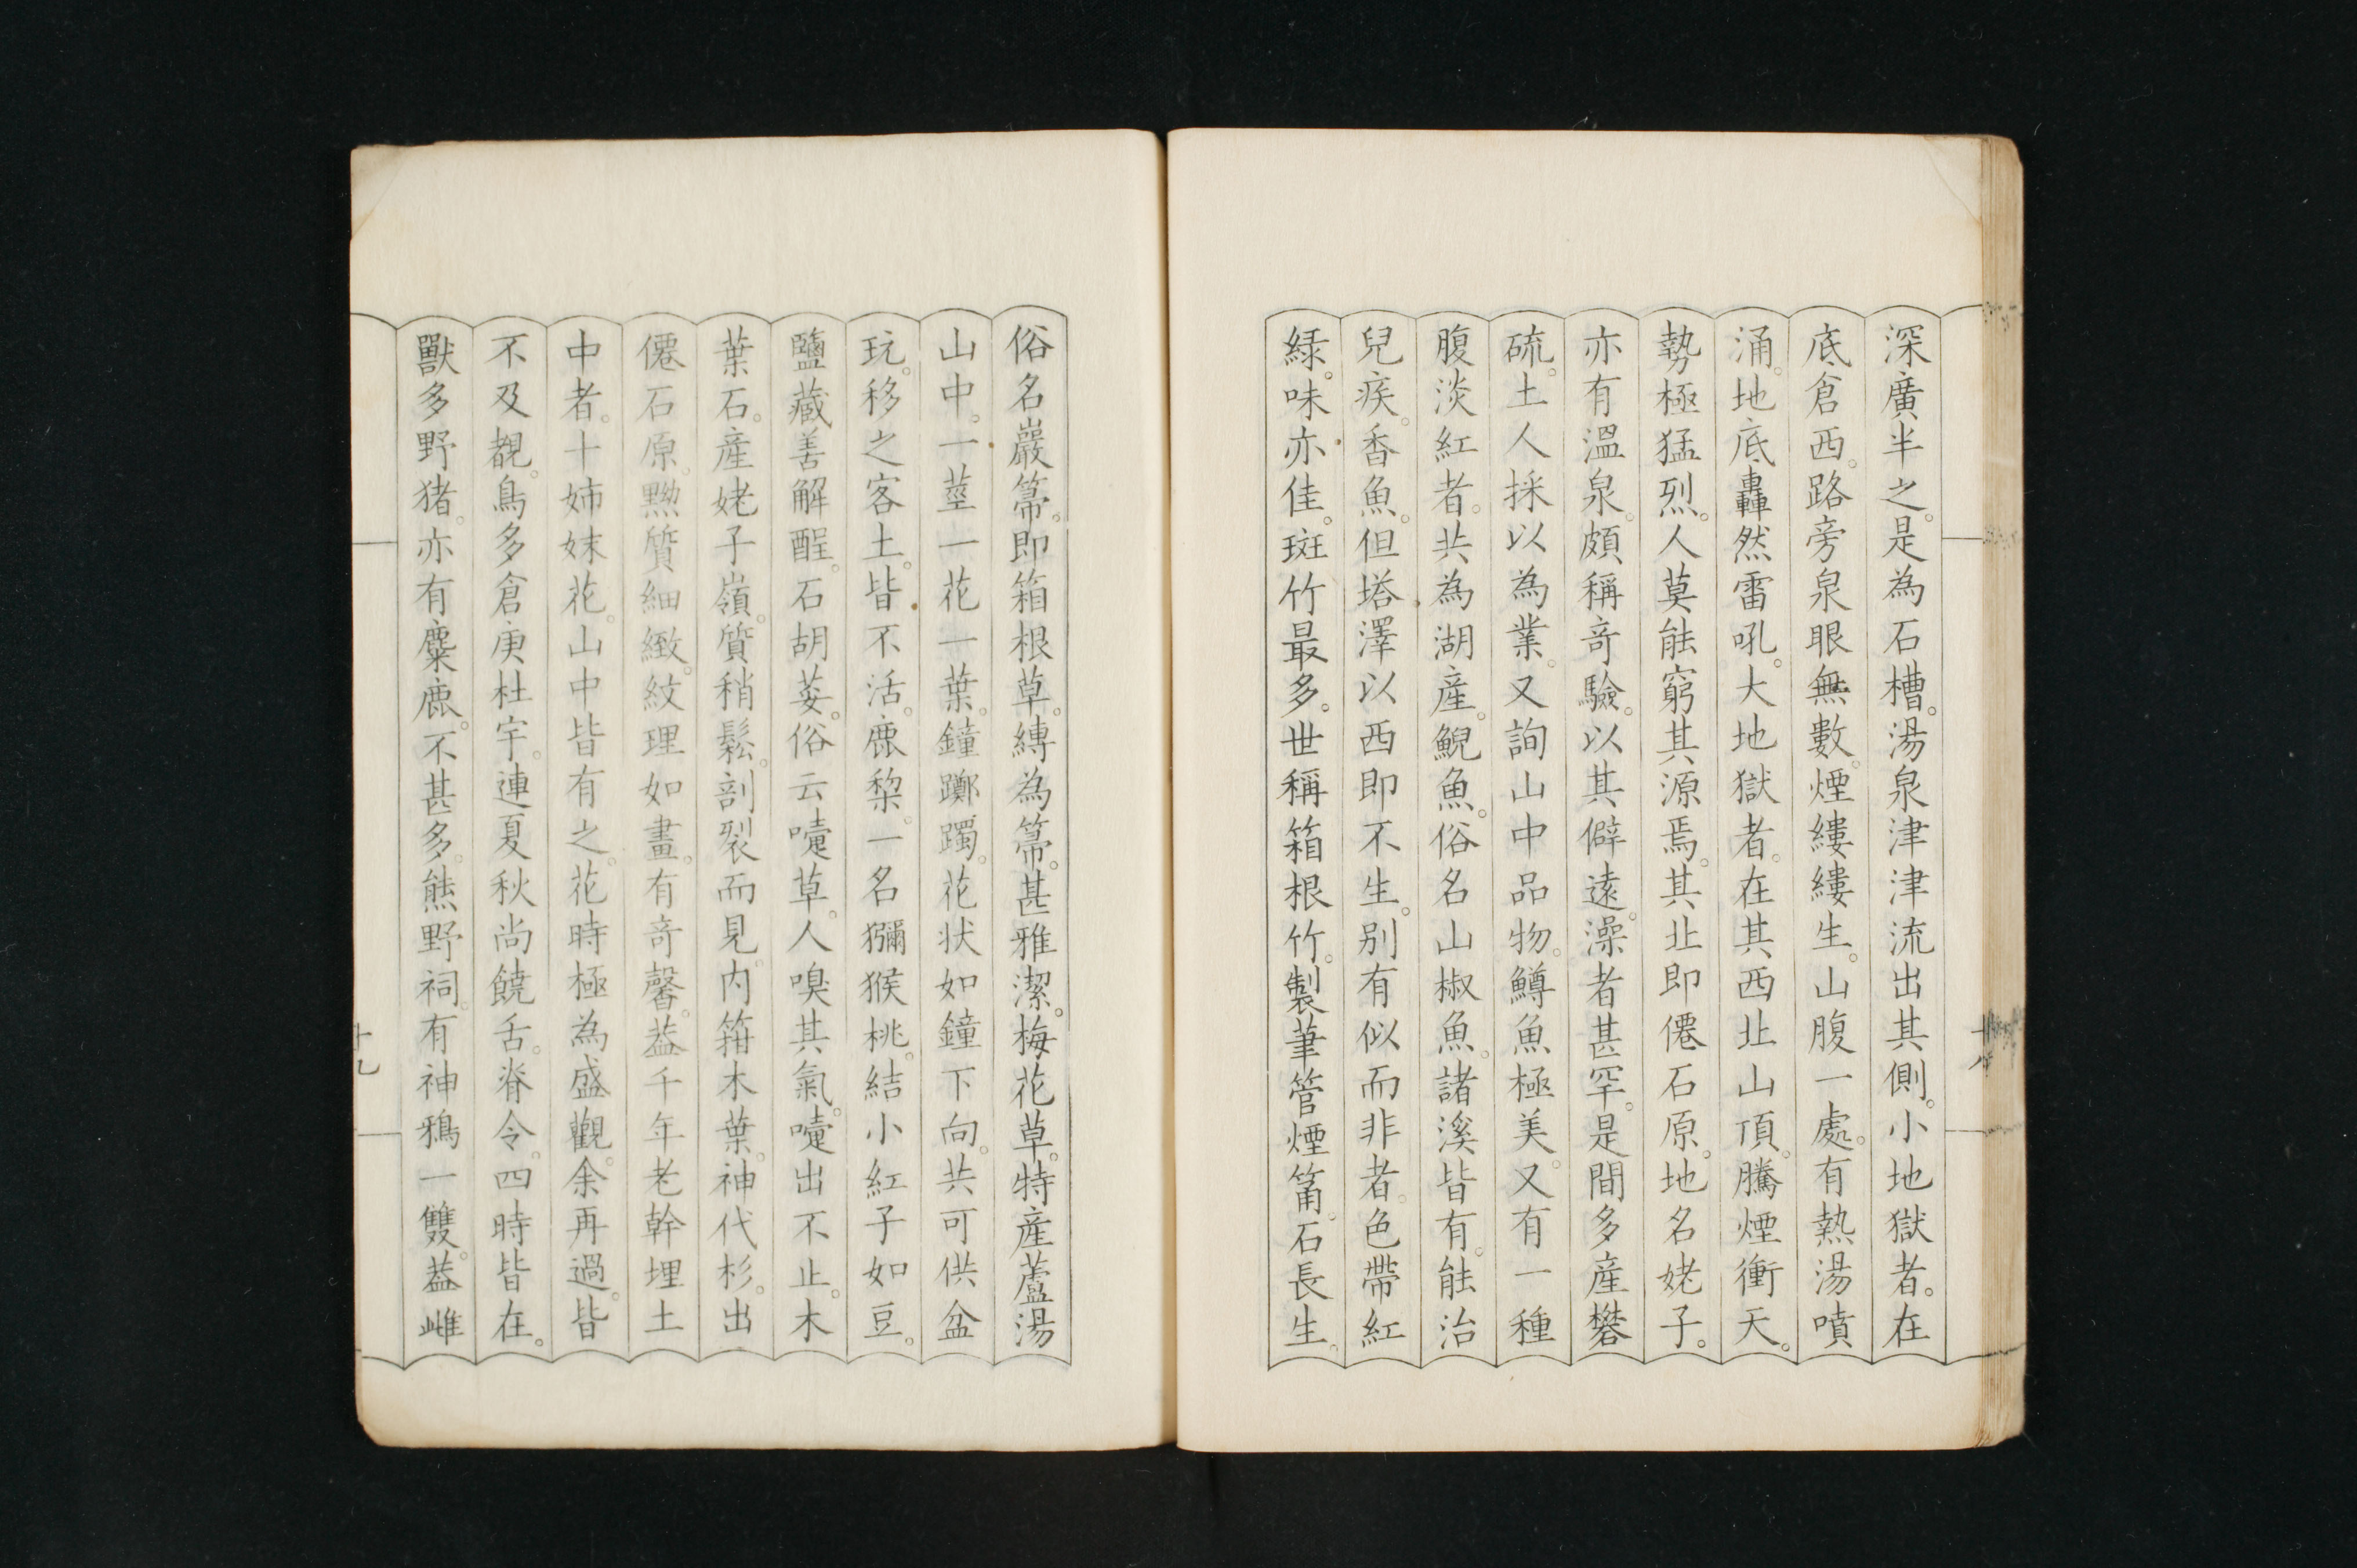 深廣半之。是為石槽。湯泉津津流出其側。小地獄者。在
底倉西。路旁泉眼無數。煙縷縷生。山腹一處。有熱湯噴
涌。地底轟然雷吼。大地獄者。在其西北山頂。騰煙衝天。
勢極猛烈。人莫能窮其源焉。其北即僊石原。地名姥子。
亦有溫泉。頗稱奇驗。以其僻遠。澡者甚罕。是間多產礬
硫。土人採以為業。又詢山中品物。鱒魚極美。又有一種
腹淡紅者。共為湖產。鯢魚。俗名山椒魚。諸溪皆有。能治
兒疾。香魚。但塔澤以西即不生。別有似而非者。色帶紅
綠。味亦佳。斑竹最多。世稱箱根竹。製筆管煙筩。石長生。
俗名巖箒。即箱根草。縛為箒。甚雅潔。梅花草。特產蘆湯
山中。一莖一花一葉。鐘躑躅。花狀如鐘下向。共可供盆
玩。移之客土。皆不活。鹿梨。一名獼猴桃。結小紅子如豆。
鹽藏善解酲。石胡荽。俗云嚏草。人嗅其氣。嚏出不止。木
葉石。產姥子嶺。質稍鬆。剖裂而見。内箝木葉。神代杉。出
僊石原。黝質細緻。紋理如畫。有奇馨。葢千年老幹埋土
中者。十姉妹花。山中皆有之。花時極為盛觀。余再過。皆
不及覩。鳥多倉庚杜宇。連夏秋尚饒舌。脊令。四時皆在。
獸多野猪。亦有麋鹿。不甚多。熊野祠。有神鴉一雙。葢雌
十九